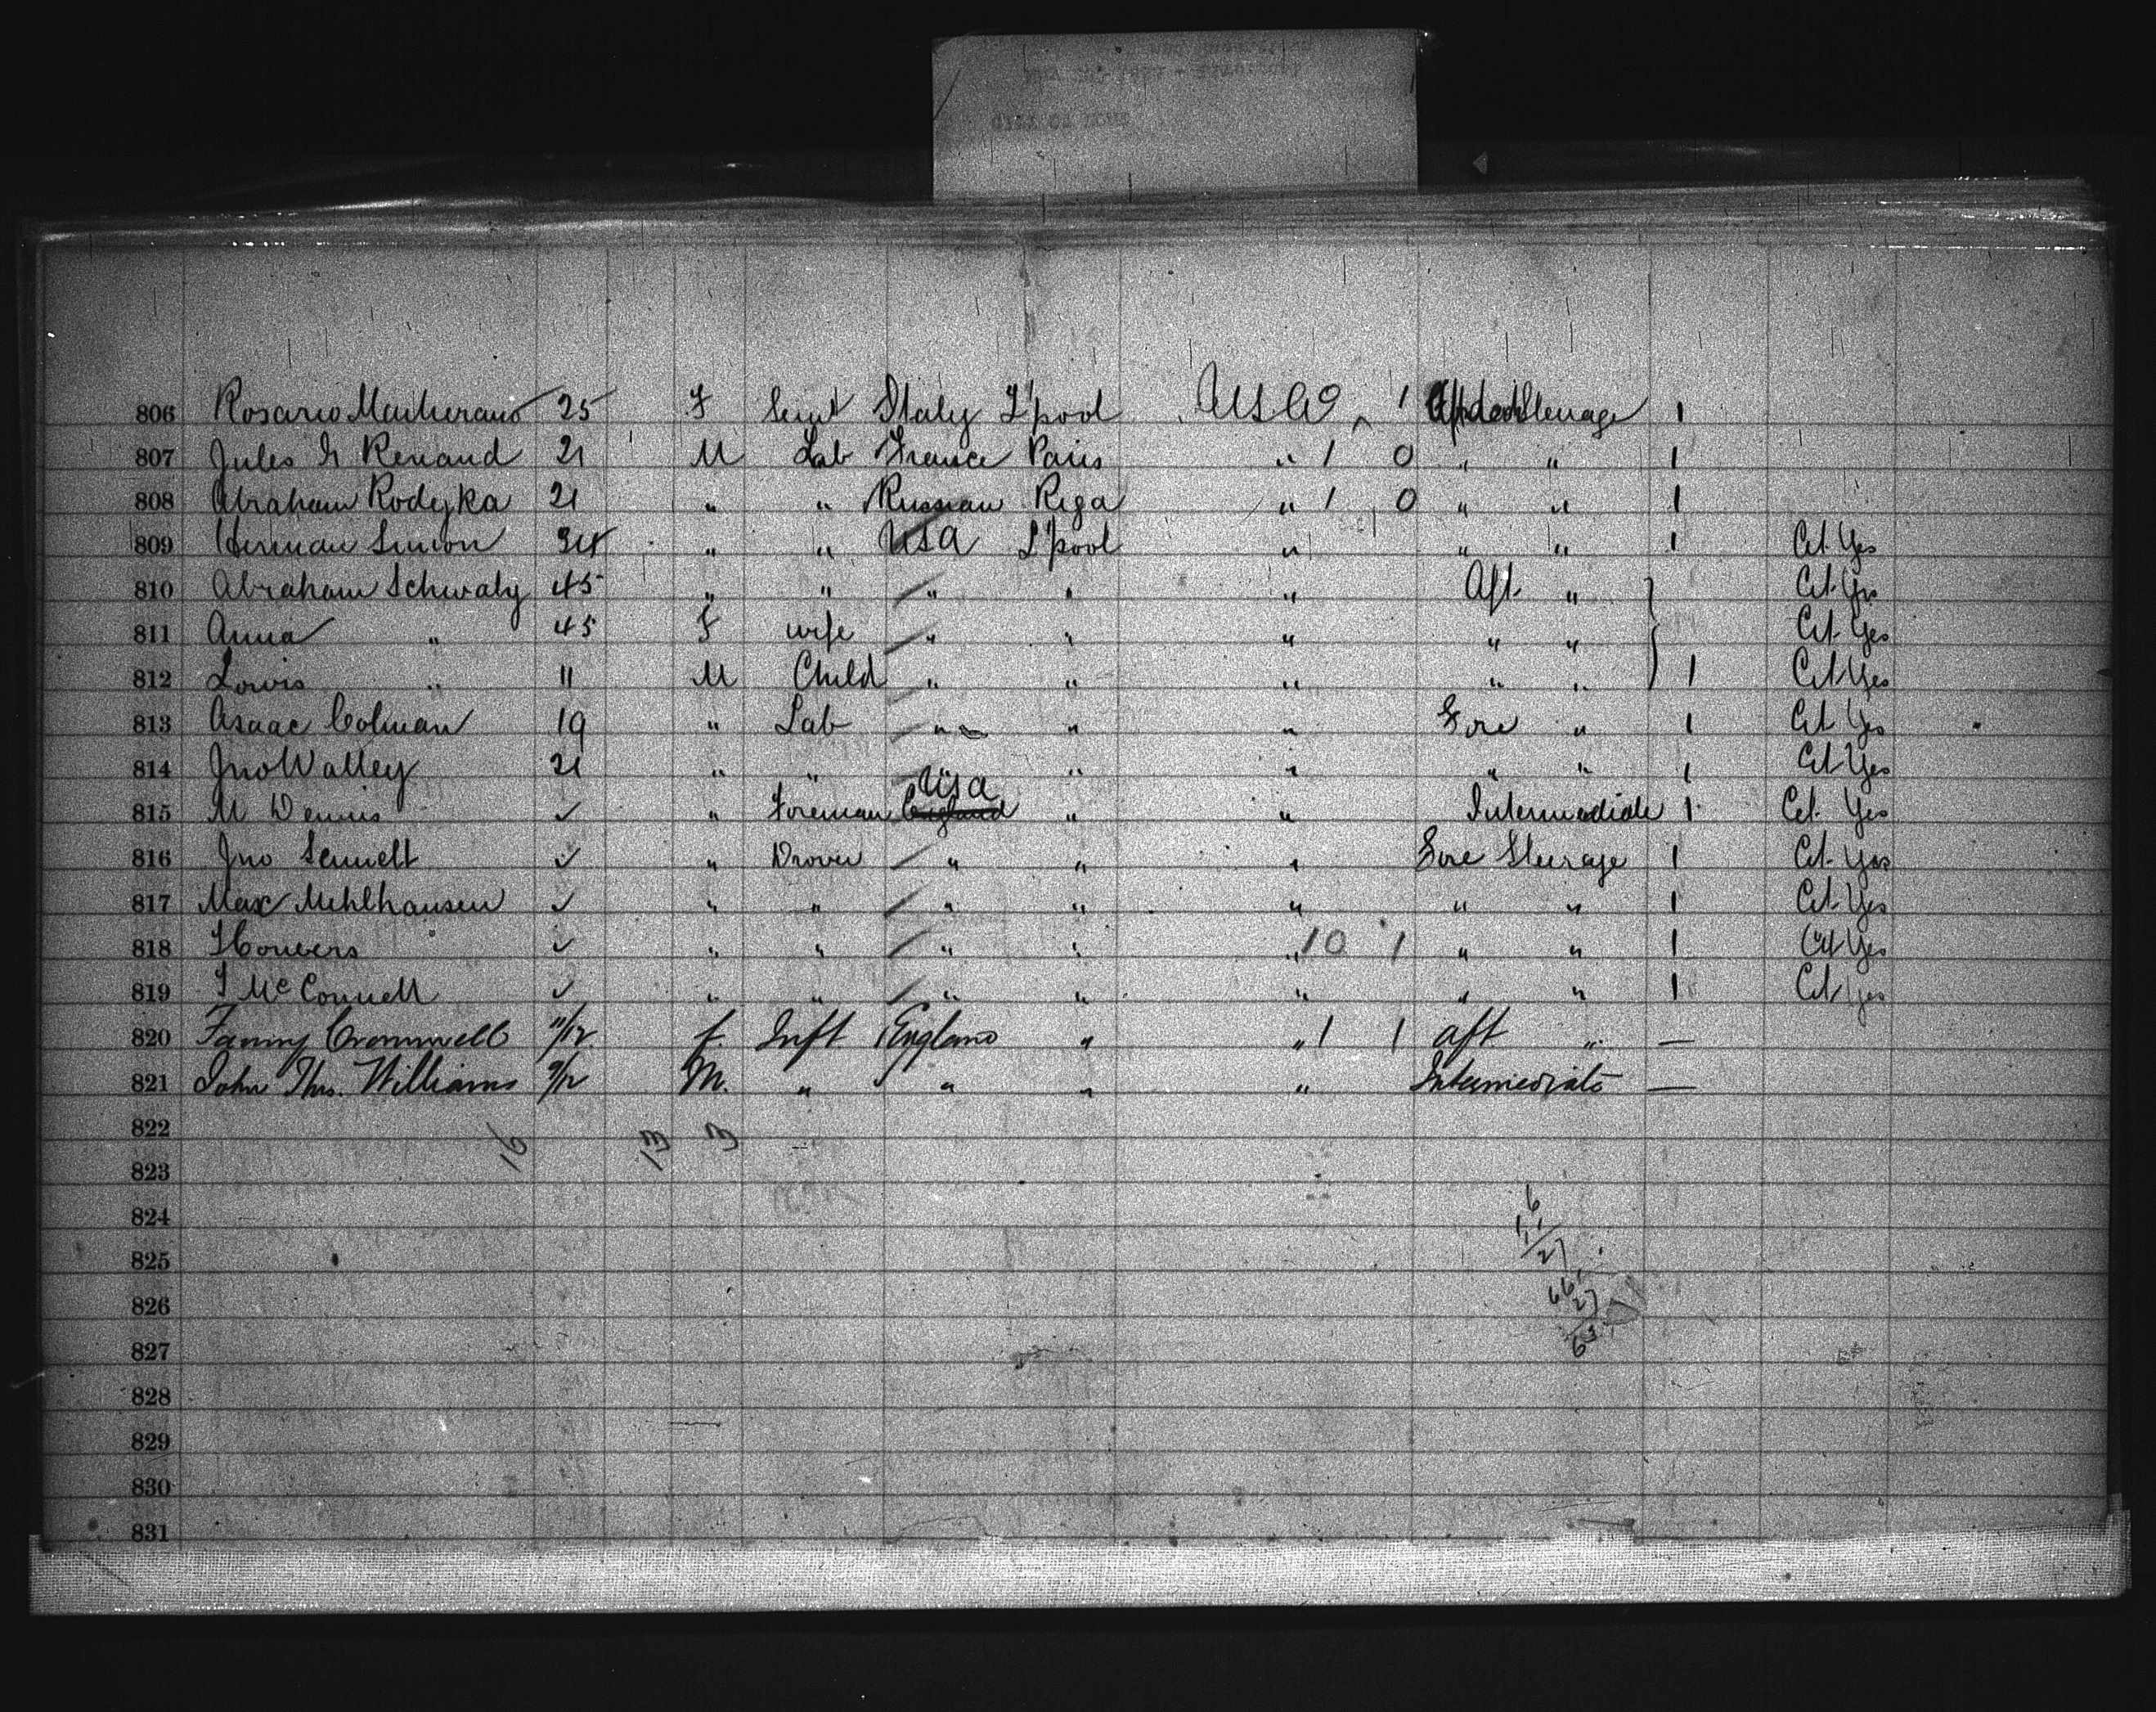 806 Rosario 25 F Servt Italy L'pool USA 0 1 Steerage 1
807 Jules G Renaud 21 M Lab France Paris " 1 0 " " 1
808 Abraham Rodejka 21 " " Russian Riga " 1 0 " " 1
809 Herman Simon 34 " " USA L'pool " " " 1 Cit Yes
810 Abraham Schwaly 45 " " " " " Aft " Cit Yes
811 Anna " 45 F wife " " " " " Cit Yes
812 Lowis " 11 M Child " " " " " 1 Cit Yes
813 Asaac Colman 19 " Lab " " " Fore " 1 Cit Yes
814 Jno Walley 21 " " " " " " " 1 Cit Yes
815 M Dennis ✓ " Foreman England USA " " Intermediate 1 Cit Yes
816 Jno Sennett ✓ " Drover " " " Fore Steerage 1 Cit Yes
817 Max Mehlhausen ✓ " " " " " " " 1 Cit Yes
818 ✓ " " " " " 10 1 " " 1 Cit Yes
819 McConnell ✓ " " " " " " " 1 Cit Yes
820 Fanny Cromwell 11/12 f Inft England " " 1 1 aft " —
821 John Thos. Williams 9/12 M. " " " " Intermediate —
822 16 13 3
823
824 6
825 27
826 27
827
828
829
830
831